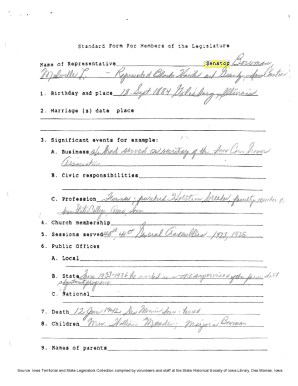 Standard Form For Members of the Legislature
Name of Representative Senator Bowman
Melville L. - Represented Black Hawk and Grundy Counties
1. Birthday and place 18 Sept 1884 Galesburg, Illinois
2. Marriage (s) date place
3. Significant events for example:
A. Business served as secretary of the Iowa Corn Growers
Association
B. Civic responsibilities
C. Profession Farmer - purebred Holstein breeder, faculty member of
Iowa State College, Ames, Iowa
4. Church membership
5. Sessions served 45th, 46th General Assemblies 1933, 1935
6. Public Offices
A. Local
B. State From 1935-1936 he
C. National
7. Death 12 Jan 1942
8. Children Mrs. Meade: Marjorie Bowman
9. Names of parents
Source: Iowa Territorial and State Legislators Collection compiled by volunteers and staff at the State Historical Society of Iowa Library, Des Moines, Iowa.